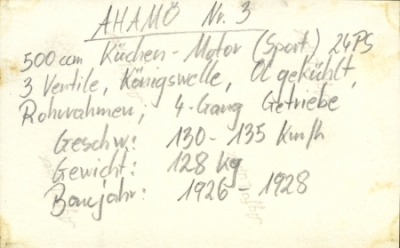 AHAMO Nr. 3
500 ccm Küchen-Motor (Sport) 24 PS
3 Ventile, Königswelle, Öl gekühlt,
Rohrrahmen, 4-Gang Getriebe
Geschw.: 130-135 Km/h
Gewicht: 128 Kg
Baujahr: 1926-1928